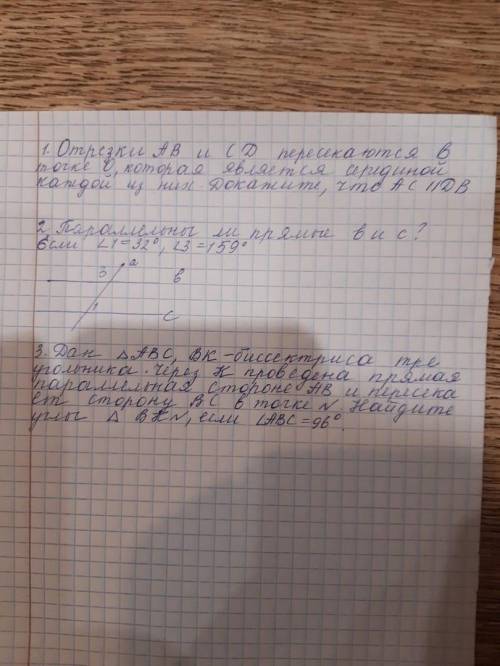 1. Отрезки AB и CD пересекаются в
точке O, которая является серединой
каждой из них Докажите, что AC || DB
2. Параллельны ли прямые в и с?
Если ∠1=32°, ∠3=159°
a
3
в
1
с
3. Дан △ABC, BK-биссектриса тре
угольника. Через K проведена прямая
параллельная стороне AB и пересека
ет сторону BC в точке N. Найдите
углы △ BKN, если ∠ABC=96°.